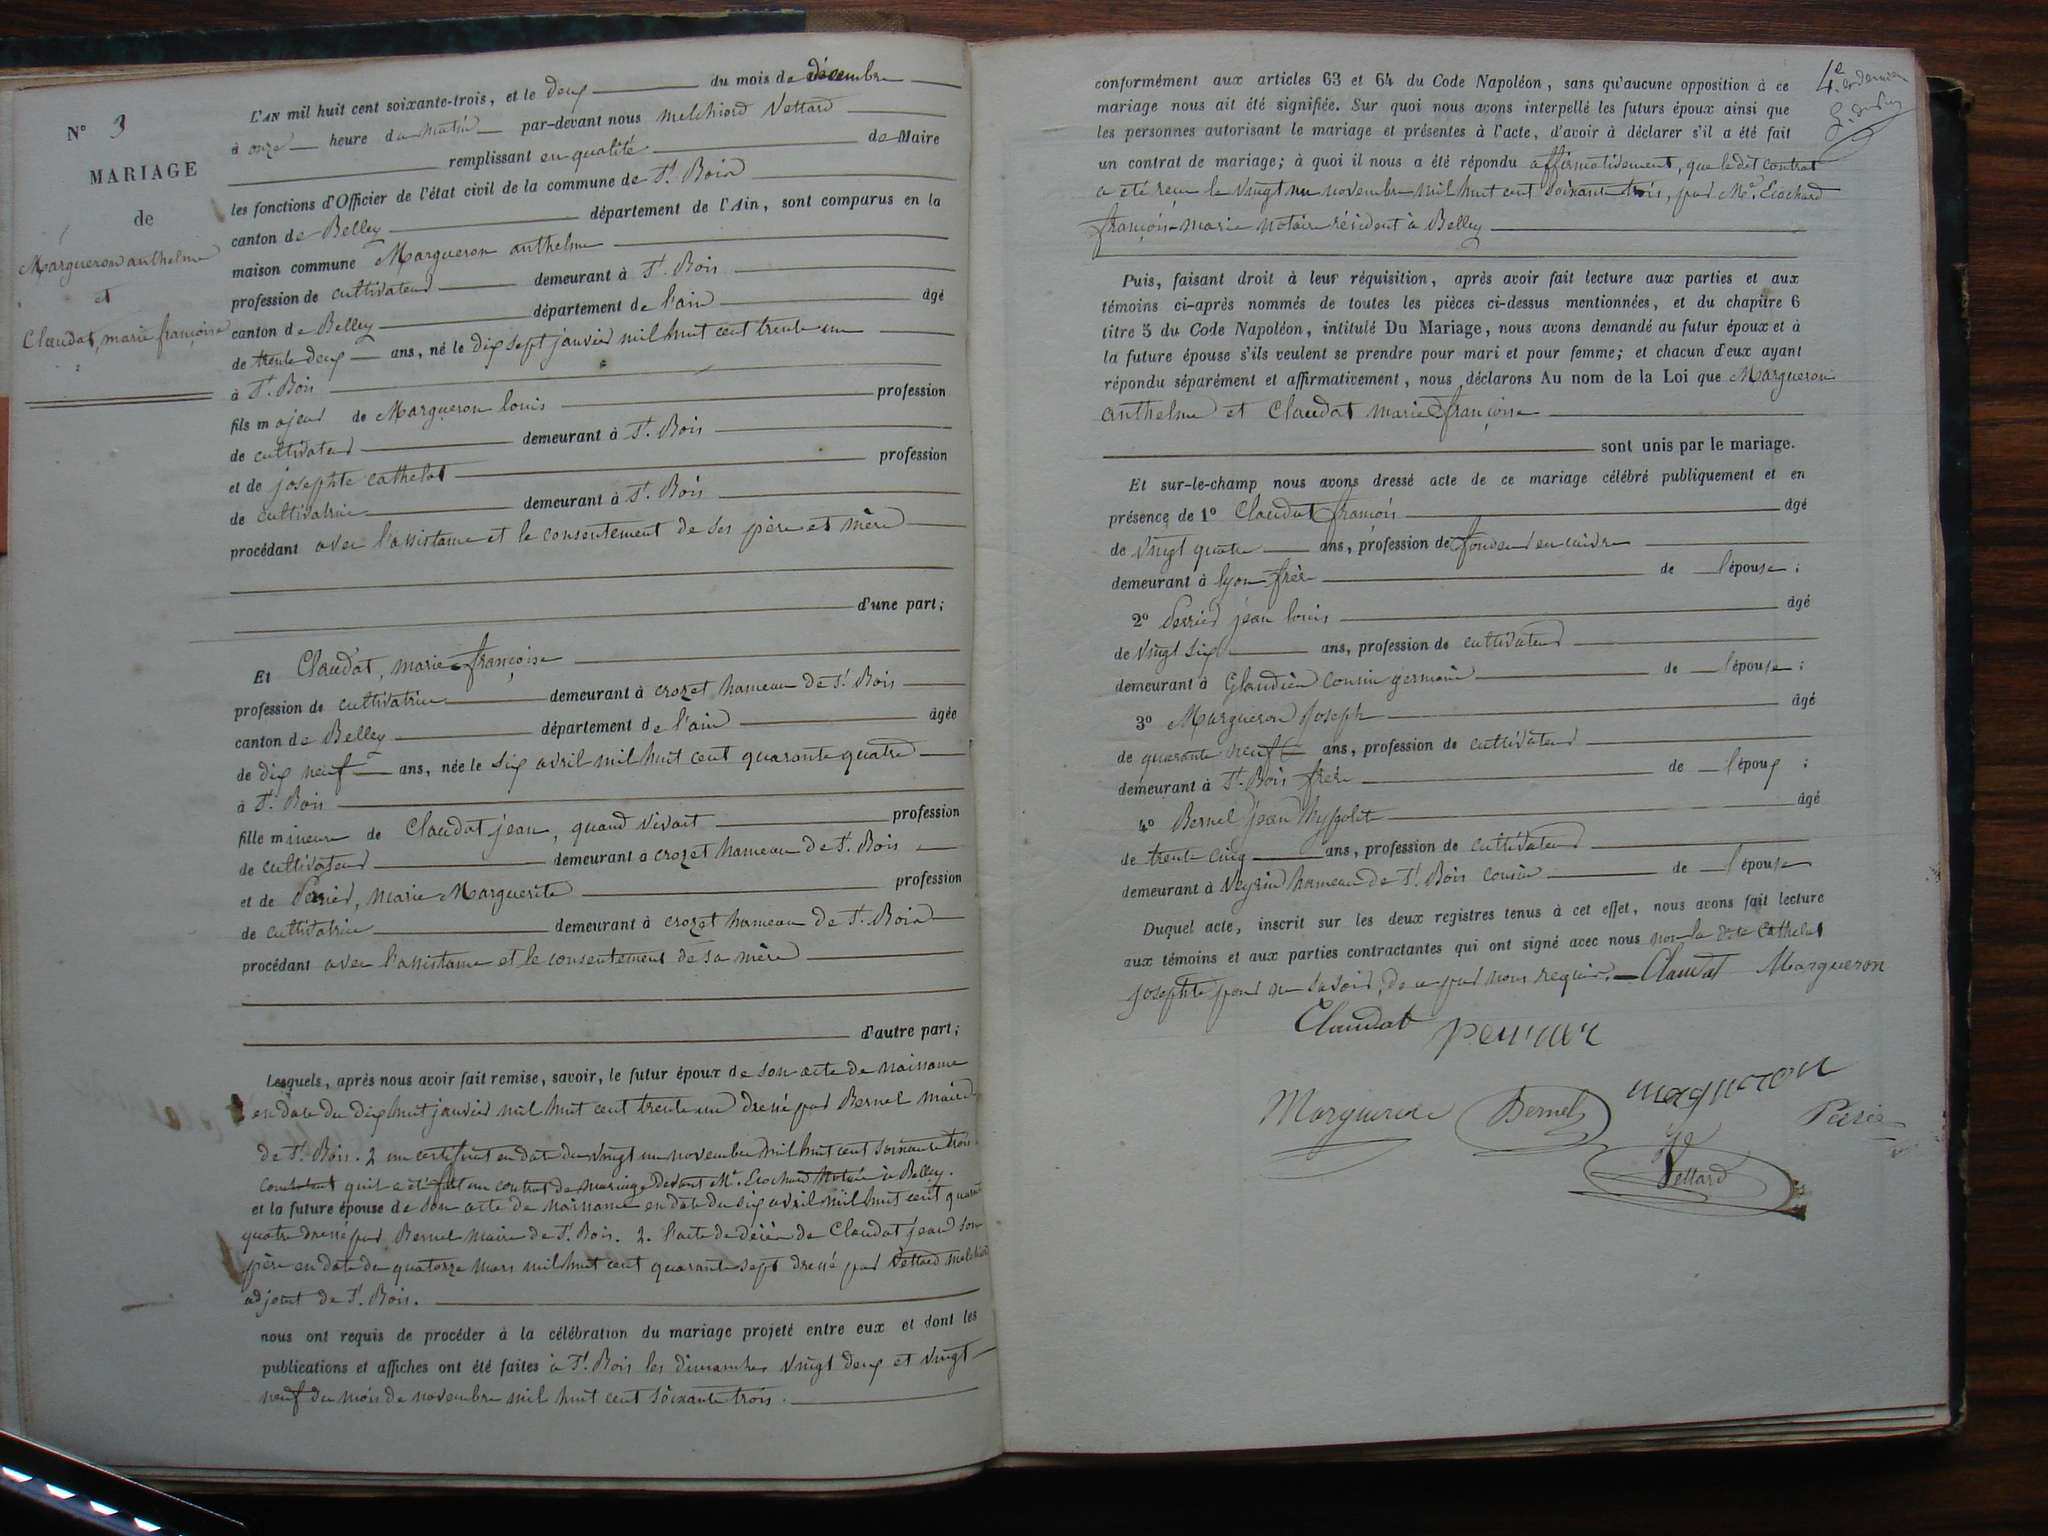 N° 3
MARIAGE
de
Margueron anthelme
et
Claudat, marie françoise
L'AN mil huit cent soixante-trois, et le deux du mois de décembre
à onze heure du matin par-devant nous melchiord Vettard
remplissant en qualité de Maire
les fonctions d'Officier de l'état civil de la commune de St. Bois
canton de Belley département de l'Ain, sont comparus en la
maison commune Margueron anthelme
profession de cultivateur demeurant à St. Bois
canton de Belley département de l'ain âgé
de trente deux ans, né le dix sept janvier mil huit cent trente un
à St. Bois
fils majeur de Margueron louis profession
de cultivateur demeurant à St. Bois
et de josephte cathelat profession
de cultivatrice demeurant à St. Bois
procédant avec l'assistance et le consentement de ses père et mère
d'une part;
Et Claudat, marie françoise
profession de cultivatrice demeurant à crozet hameau de St. Bois
canton de Belley département de l'ain âgée
de dix neuf ans, née le six avril mil huit cent quarante quatre
à St. Bois
fille mineure de Claudat jean, quand vivait profession
de cultivateur demeurant à crozet hameau de St. Bois
et de Perrier, Marie Marguerite profession
de cultivatrice demeurant à crozet hameau de St. Bois
procédant avec l'assistance et le consentement de sa mère
d'autre part;
Lesquels, après nous avoir fait remise, savoir, le futur époux de son acte de naissance
en date du dix huit janvier mil huit cent trente un dressé par Bernel maire
de St. Bois. 2 un certificat en date du vingt un novembre mil huit cent soixante trois
constatant qu'il a été fait un contrat de mariage devant Me. Ecochard Notaire à Belley.
et la future épouse de son acte de naissance en date du six avril mil huit cent quarante
quatre dressé par Bernel maire de St. Bois. 2. l'acte de décès de Claudat jean son
père en date du quatorze mars mil huit cent quarante sept dressé par Vettard melchior
adjoint de St. Bois.
nous ont requis de procéder à la célébration du mariage projeté entre eux et dont les
publications et affiches ont été faites à St. Bois les dimanches vingt deux et vingt
neuf du mois de novembre mil huit cent soixante trois.
4e et dernier
conformément aux articles 63 et 64 du Code Napoléon, sans qu'aucune opposition à ce
mariage nous ait été signifiée. Sur quoi nous avons interpellé les futurs époux ainsi que
les personnes autorisant le mariage et présentes à l'acte, d'avoir à déclarer s'il a été fait
un contrat de mariage; à quoi il nous a été répondu affirmativement, que le dit contrat
a été reçu le vingt un novembre mil huit cent soixante trois, par Me. Ecochard
françois-marie notaire résident à Belley
Puis, faisant droit à leur réquisition, après avoir fait lecture aux parties et aux
témoins ci-après nommés de toutes les pièces ci-dessus mentionnées, et du chapitre 6
titre 5 du Code Napoléon, intitulé Du Mariage, nous avons demandé au futur époux et à
la future épouse s'ils veulent se prendre pour mari et pour femme; et chacun d'eux ayant
répondu séparément et affirmativement, nous déclarons Au nom de la Loi que Margueron
anthelme et Claudat marie françoise
sont unis par le mariage.
Et sur-le-champ nous avons dressé acte de ce mariage célébré publiquement et en
présence de 1° Claudat françois âgé
de vingt quatre ans, profession de fondeur en cuivre
demeurant à lyon frère de l'épouse;
2° Perrier jean louis âgé
de vingt six ans, profession de cultivateur
demeurant à Glandieu cousin germain de l'épouse;
3° Margueron Joseph âgé
de quarante neuf ans, profession de cultivateur
demeurant à St. Bois frère de l'époux;
4° Bernel Jean Hyppolit âgé
de trente cinq ans, profession de cultivateur
demeurant à Veyrin hameau de St. Bois cousin de l'épouse
Duquel acte, inscrit sur les deux registres tenus à cet effet, nous avons fait lecture
aux témoins et aux parties contractantes qui ont signé avec nous non la dite Cathelat
Josephte pour ne savoir, de ce par nous requise. Claudat Margueron
Claudat perrier
Bernel
Vettard